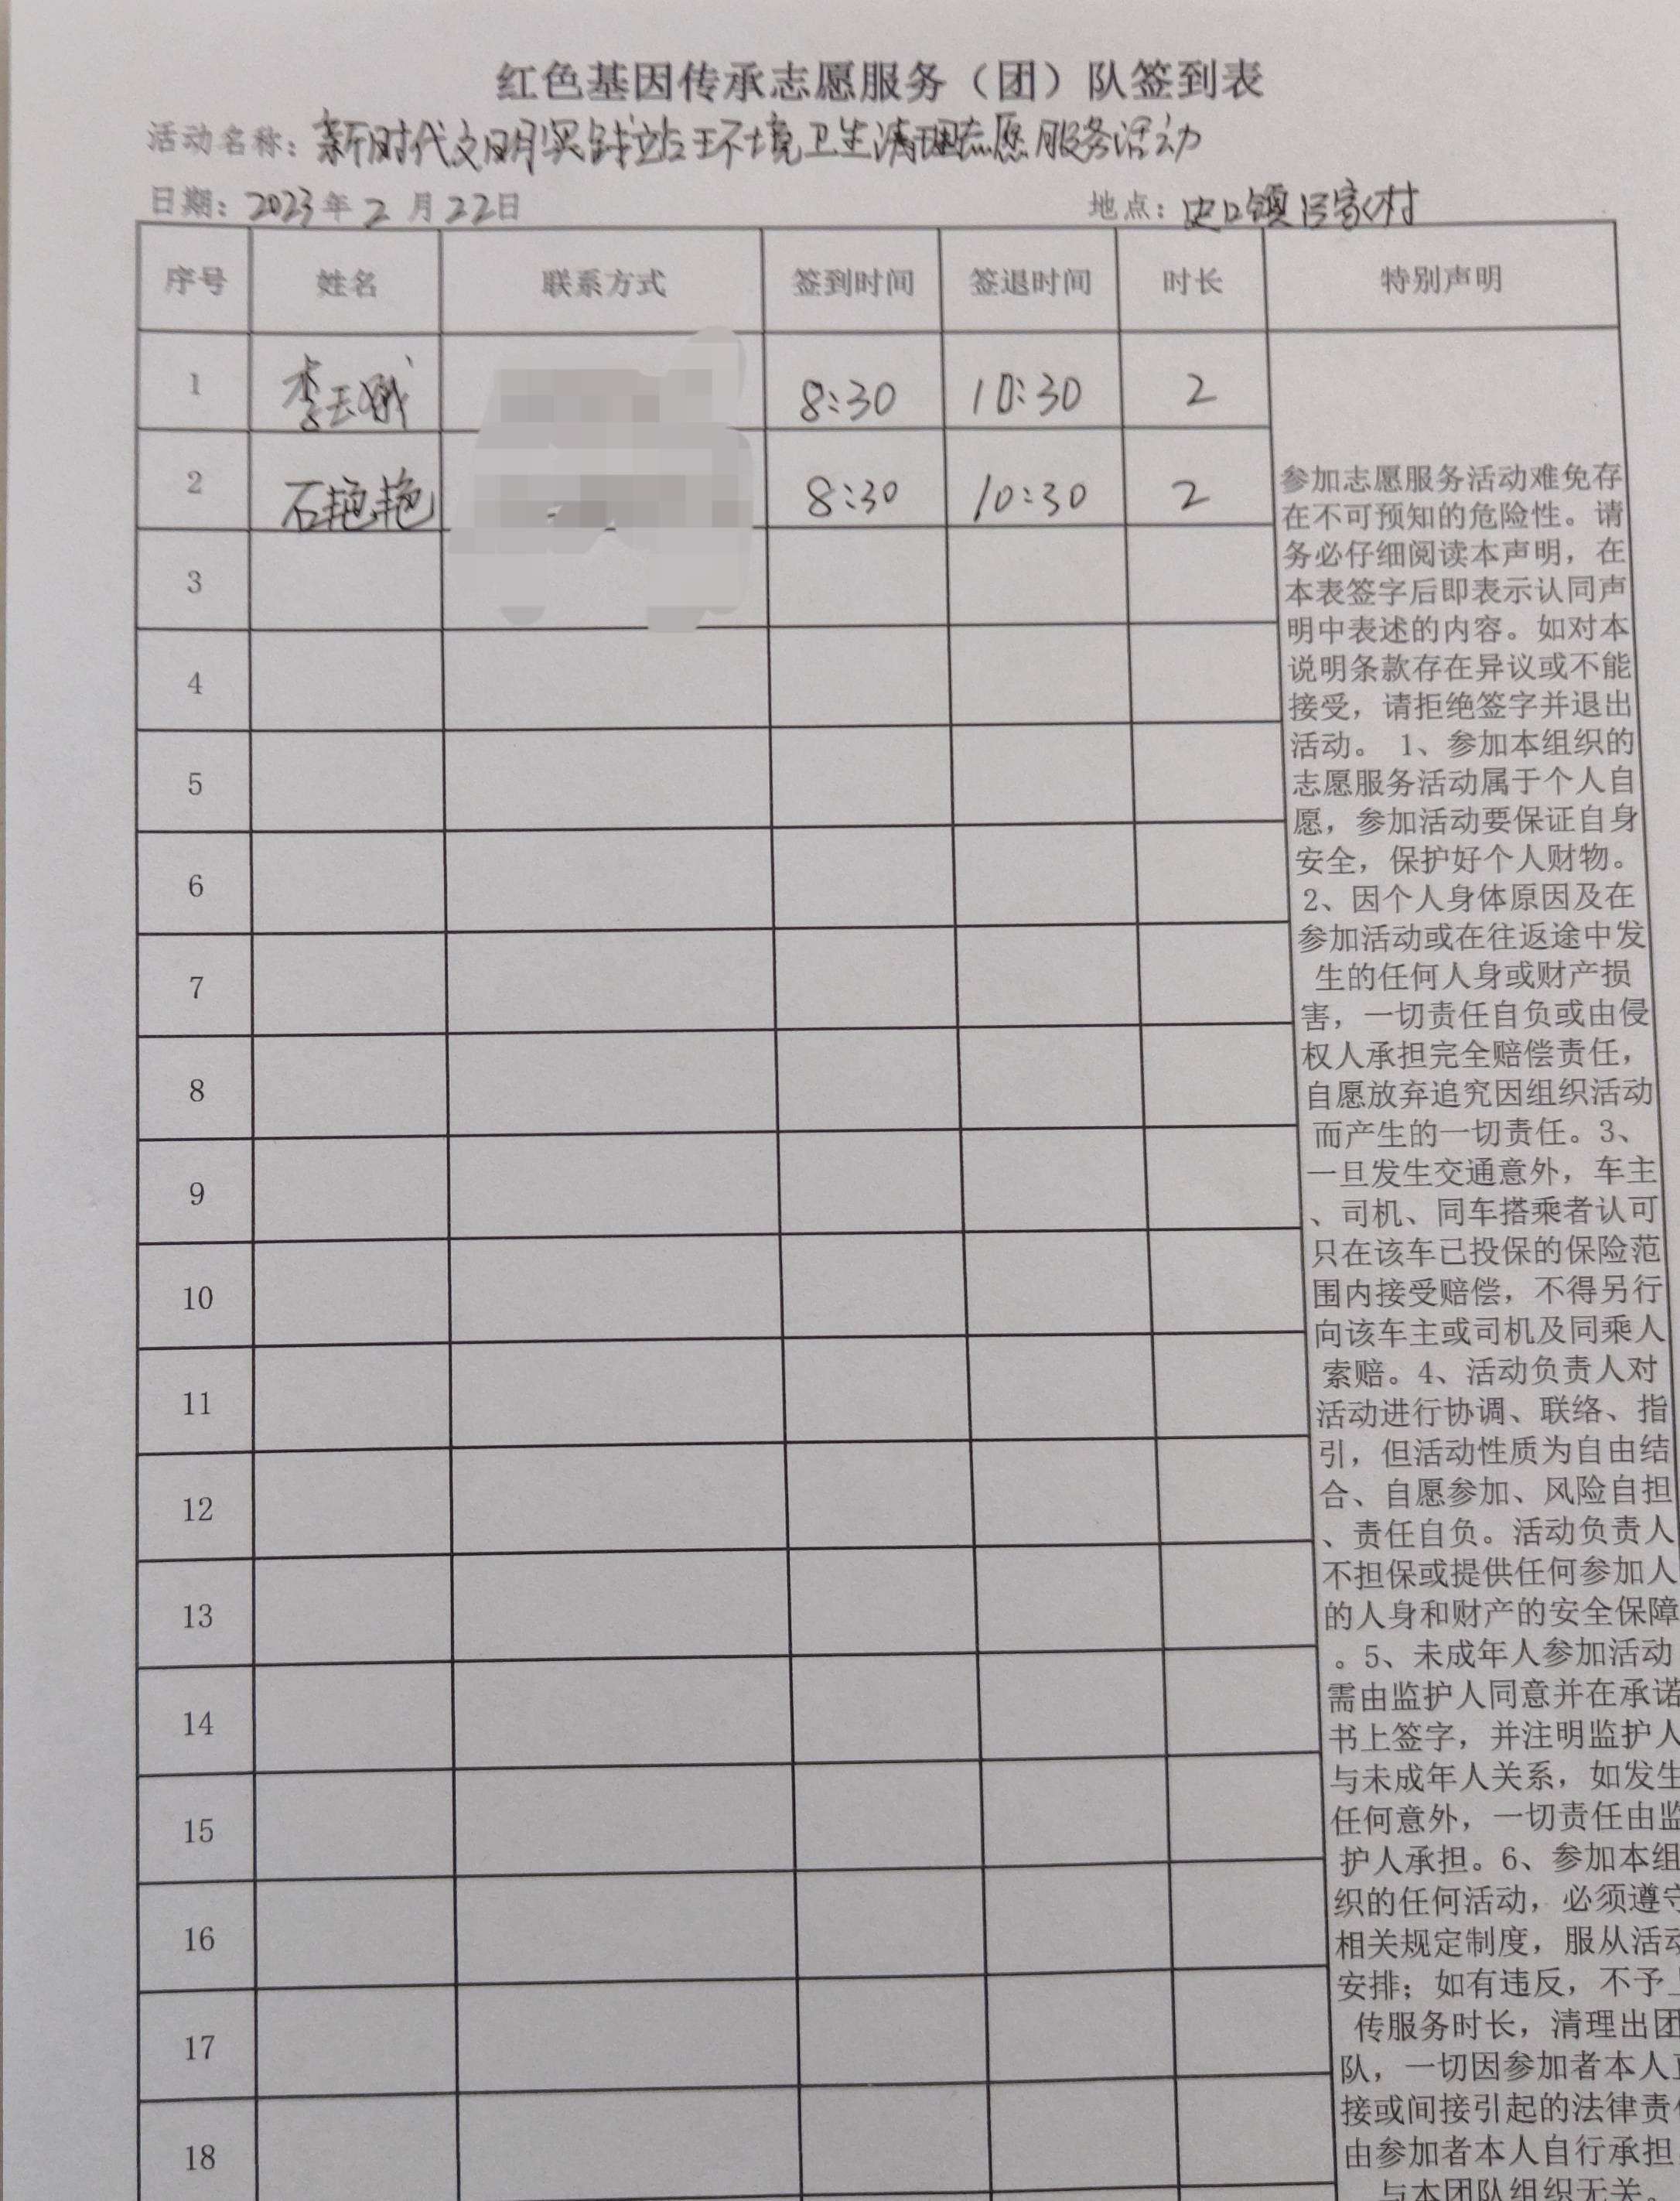 红色基因传承志愿服务（团）队签到表
活动名称：新时代文明实践站环境卫生清理志愿服务活动
日期：2023年2月22日 地点：史口镇吕家村
序号 姓名 联系方式 签到时间 签退时间 时长 特别声明
1 李玉娥 8:30 10:30 2
2 石艳艳 8:30 10:30 2
3
4
5
6
7
8
9
10
11
12
13
14
15
16
17
18
参加志愿服务活动难免存
在不可预知的危险性。请
务必仔细阅读本声明，在
本表签字后即表示认同声
明中表述的内容。如对本
说明条款存在异议或不能
接受，请拒绝签字并退出
活动。 1、参加本组织的
志愿服务活动属于个人自
愿，参加活动要保证自身
安全，保护好个人财物。
2、因个人身体原因及在
参加活动或在往返途中发
生的任何人身或财产损
害，一切责任自负或由侵
权人承担完全赔偿责任，
自愿放弃追究因组织活动
而产生的一切责任。3、
一旦发生交通意外，车主
、司机、同车搭乘者认可
只在该车已投保的保险范
围内接受赔偿，不得另行
向该车主或司机及同乘人
索赔。4、活动负责人对
活动进行协调、联络、指
引，但活动性质为自由结
合、自愿参加、风险自担
、责任自负。活动负责人
不担保或提供任何参加人
的人身和财产的安全保障
。5、未成年人参加活动
需由监护人同意并在承诺
书上签字，并注明监护人
与未成年人关系，如发生
任何意外，一切责任由监
护人承担。6、参加本组
织的任何活动，必须遵守
相关规定制度，服从活动
安排；如有违反，不予上
传服务时长，清理出团
队，一切因参加者本人直
接或间接引起的法律责任
由参加者本人自行承担
与本团队组织无关。